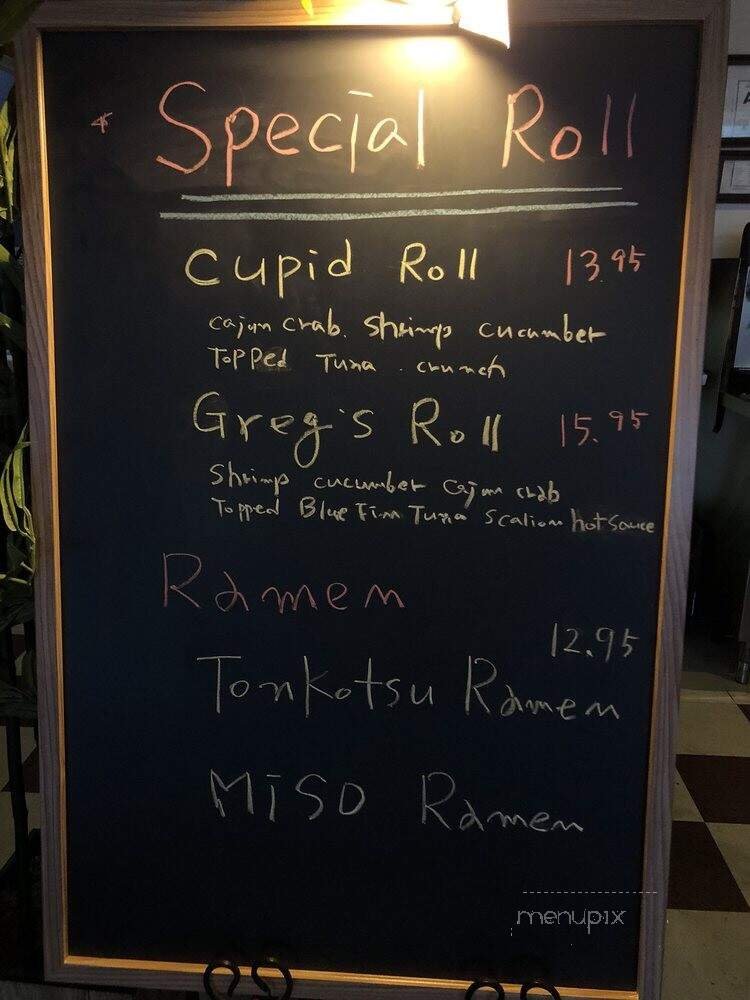 Special Roll
Cupid Roll 13.95
cajun crab. shrimp cucumber
Topped Tuna . crunch
Greg's Roll 15.95
Shrimp cucumber cajun crab
Topped Blue Fin Tuna scalion hot sauce
Ramen
12.95
Tonkotsu Ramen
MISO Ramen
menupix